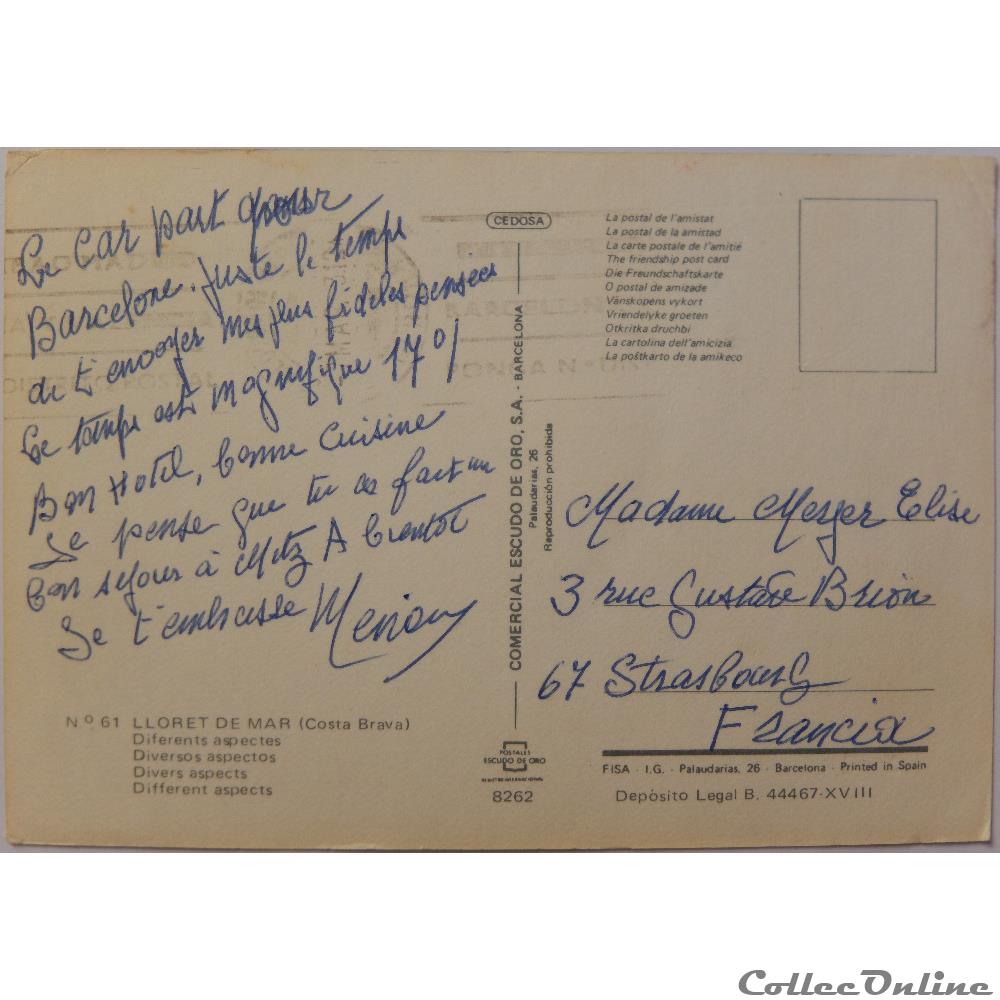 Le Car part pour
Barcelone. Juste le temps
de t'envoyer mes plus fidèles pensées
Le temps est magnifique 17°!
Bon Hotel, bonne cuisine
Je pense que tu as fait un
bon séjour à Metz A bientôt
Je t'embrasse
Nº 61 LLORET DE MAR (Costa Brava)
Diferents aspectes
Diversos aspectos
Divers aspects
Different aspects
CEDOSA
COMERCIAL ESCUDO DE ORO, S.A. - BARCELONA
Palaudarias, 26
Reproducción prohibida
POSTALES
ESCUDO DE ORO
8262
La postal de l'amistat
La postal de la amistad
La carte postale de l'amitié
The friendship post card
Die Freundschaftskarte
O postal de amizade
Vänskopens vykort
Vriendelyke groeten
Otkritka druchbi
La cartolina dell'amicizia
La poŝtkarto de la amikeco
Madame Meyer Elise
3 rue Gustave Brion
67 Strasbourg
Francia
FISA - I.G. - Palaudarias, 26 - Barcelona - Printed in Spain
Depósito Legal B. 44467-XVIII
CollecOnline